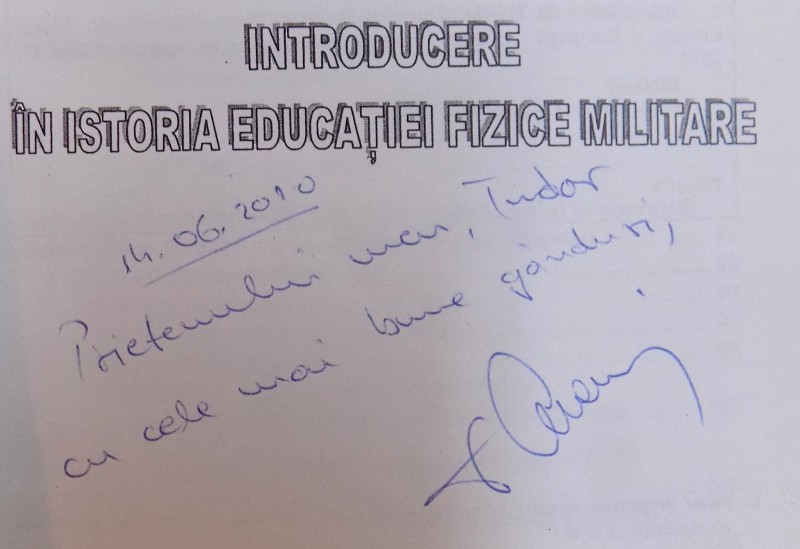 INTRODUCERE
ÎN ISTORIA EDUCAŢIEI FIZICE MILITARE
14.06.2010
Prietenului meu, Tudor
cu cele mai bune gânduri,